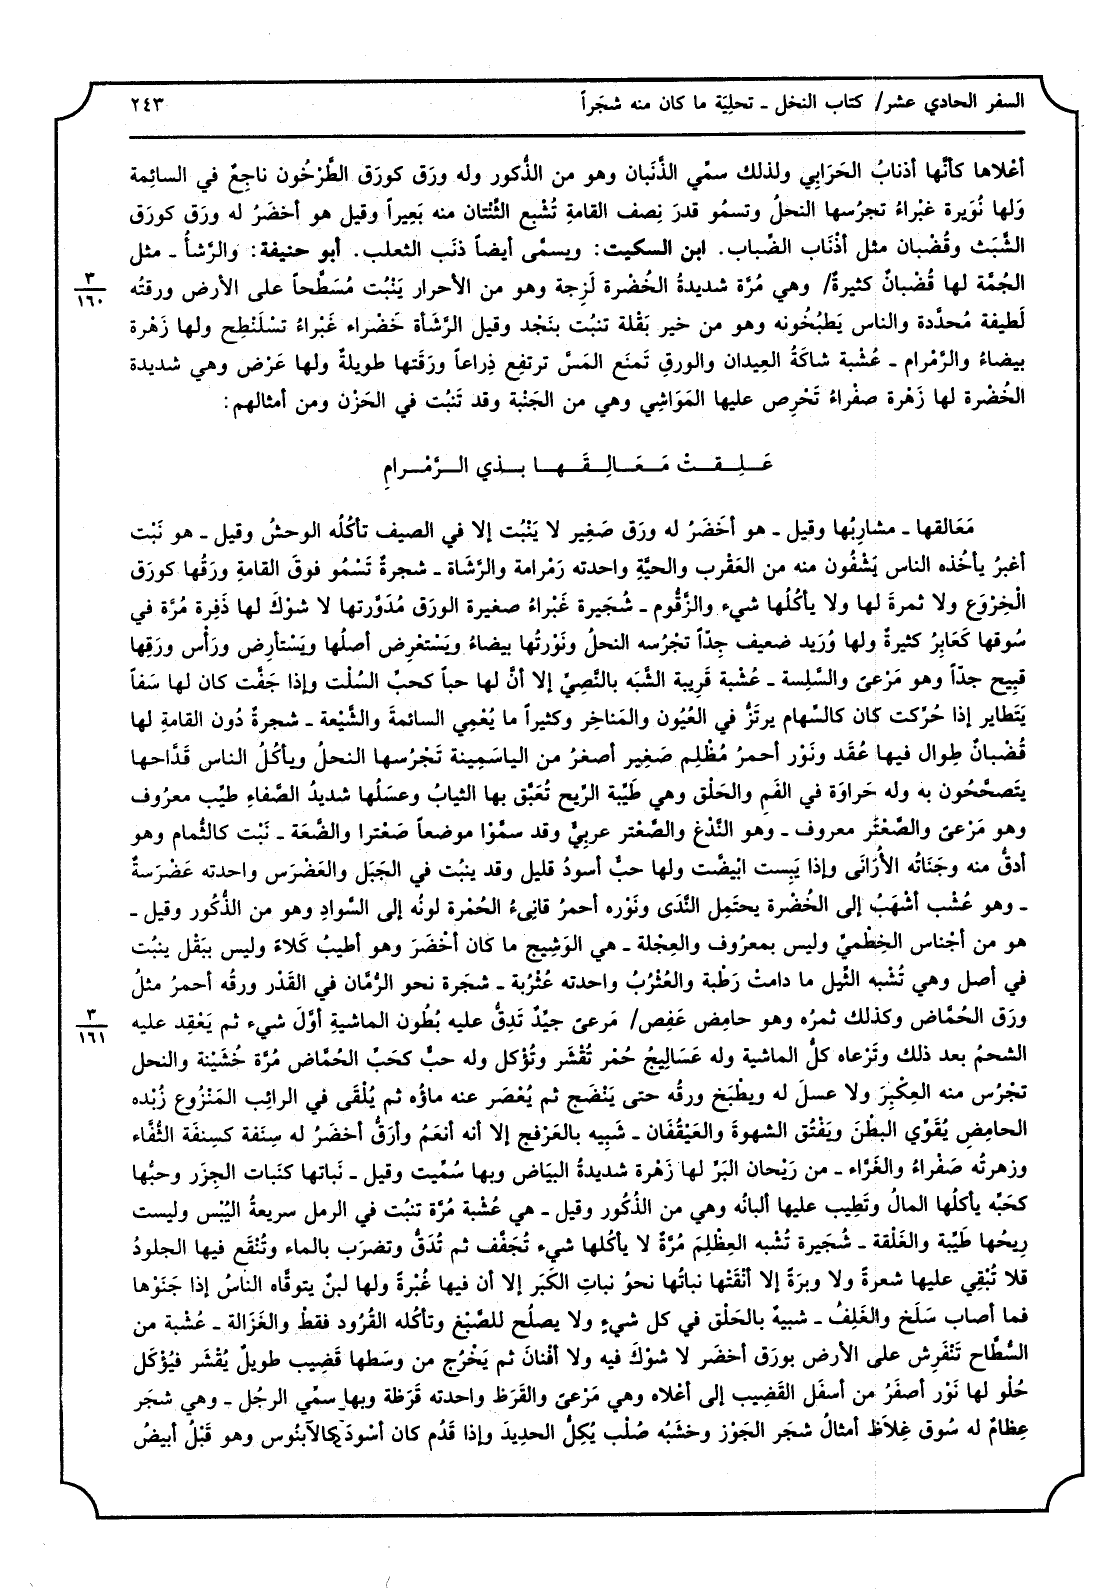 السفر الحادي عشر/ كتاب النخل ـ تحلِيَة ما كان منه شجَراً ٢٤٣
أعْلاها كأنَّها أذنابُ الحَرَابِي ولذلك سمِّي الذَّنَبان وهو من الذُّكور وله ورَق كورَق الطَّرْخُون ناجِعٌ في السائِمة
وَلها نُوَيرة غبْراءُ تجرُسها النحلُ وتسمُو قدرَ نِصف القامةِ تُشْبِع الثِّنْتان منه بَعِيراً وقيل هو أخضَرُ له ورَق كورَق
الشَّبَث وقُضْبان مثل أذْنَاب الضِّباب. ابن السكيت: ويسمَّى أيضاً ذنَب الثعلب. أبو حنيفة: والرَّشأُ ـ مثل
الجُمَّة لها قُضْبانٌ كثيرةٌ/ وهي مُرَّة شديدةُ الخُضْرة لَزِجة وهو من الأحرار يَنْبُت مُسَطَّحاً على الأرض ورقتُه
٣
١٦٠
لَطيفة مُحدَّدة والناس يَطبُخُونه وهو من خير بَقْلة تنبُت بنَجْد وقيل الرَّشَأة خَضْراء غَبْراءُ تسْلَنْطِح ولها زَهْرة
بيضاءُ والرَّمْرام ـ عُشْبة شاكَةُ العِيدان والورقِ تَمنَع المَسَّ ترتفِع ذِراعاً ورَقَتها طويلةٌ ولها عَرْض وهي شديدة
الخُضْرة لها زَهْرة صفْراءُ تَحْرِص عليها المَوَاشِي وهي من الجَنْبة وقد تَنبُت في الحَزْن ومن أمثالهم:
عَـلِـقـتْ مَـعَـالِـقَـهـا بـذي الـرَّمْـرامِ
مَعَالقها ـ مشارِبُها وقيل ـ هو أخَضَرُ له ورَق صَغِير لا يَنْبُت إلا في الصيف تأكُلُه الوحشُ وقيل ـ هو نَبْت
أغبرُ يأخُذه الناس يَشْفُون منه من العَقْرب والحيَّةِ واحدته رَمْرامة والرَّشَاة ـ شجرةٌ تَسْمُو فوقَ القامةِ ورَقُها كورَق
الْخِرْوَع ولا ثمرةَ لها ولا يأكُلُها شيء والزَّقُّوم ـ شُجَيرة غَبْراءُ صغيرة الورَق مُدَوَّرتها لا شوْكَ لها ذَفِرة مُرَّة في
سُوقها كَعَابِرُ كثيرةٌ ولها وُرَيد ضعيف جِدّاً تجْرُسه النحلُ ونَوْرتُها بيضاءُ ويَسْتعْرِض أصلُها ويَسْتأرِض ورَأْس ورَقِها
قبِيح جدّاً وهو مَرْعىً والسَّلِسة ـ عُشْبة قَرِيبة الشَّبَه بالنَّصِيِّ إلا أنَّ لها حباً كحبِّ السُلْت وإذا جَفَّت كان لها سَفاً
يَتَطاير إذا حُرِّكت كان كالسِّهام يرتَزُّ في العُيُون والمَناخِر وكثيراً ما يُعْمِي السائمةَ والشَّيْعة ـ شجرةٌ دُون القامةِ لها
قُضْبانٌ طِوال فيها عُقَد ونَوْر أحمرُ مُظْلِم صَغِير أصغرُ من الياسَمِينة تَجْرُسها النحلُ ويأكُلُ الناس قَدَّاحها
يتَصحَّحُون به وله حَراوَة في الفَم والحَلْق وهي طَيِّبة الرِّيح تُعَبَّق بها الثيابُ وعسَلُها شديدُ الصَّفاءِ طيِّب معروف
وهو مَرْعىً والصَّعْتَر معروف ـ وهو النَّدْغ والصَّعْتر عربِيٌّ وقد سمَّوْا موضعاً صَعْترا والضَّعَة ـ نَبْت كالثُّمام وهو
أدقُّ منه وجَنَاتُه الأُرَانَى وإذا يَبِست ابْيضَّت ولها حبٌّ أسودُ قليل وقد ينبُت في الجَبَل والعَضْرَس واحدته عَضْرَسةٌ
ـ وهو عُشْب أشْهَبُ إلى الخُضْرة يحتَمِل النَّدَى ونَوْره أحمرُ قانِىءُ الحُمْرة لونُه إلى السَّوادِ وهو من الذُّكُور وقيل ـ
هو من أجْناس الخِطْميِّ وليس بمعروف والعِجْلة ـ هي الوَشِيج ما كان أخْضَرَ وهو أطيبُ كَلاءً وليس ببَقْل ينبُت
في أصل وهي تُشْبه الثِّيل ما دامتْ رَطْبة والعُثْرُبُ واحدته عُثْرُبة ـ شجَرة نحو الرُّمَّان في القَدْر ورقه أحمرُ مثلُ
ورَق الحُمَّاض وكذلك ثمرُه وهو حامِض عَفِص/ مَرعىً جيِّدٌ تَدِقُّ عليه بُطُون الماشيةِ أوَّلَ شيء ثم يَعْقِد عليه
٣
١٦١
الشحمُ بعد ذلك وتَرْعاه كلُّ الماشية وله عَسَالِيجُ حُمْر تُقْشَر وتُؤْكل وله حبٌّ كحَبِّ الحُمَّاض مُرَّة خُشَيْنة والنحل
تجْرُس منه العِكْبِرَ ولا عسلَ له ويطْبَخ ورقُه حتى يَنْضَج ثم يُعْصَر عنه ماؤُه ثم يُلْقَى في الرائِب المَنْزُوع زُبْده
الحامِضِ يُقَوِّي البطْنَ ويَفْتُق الشهوةَ والعَيْقُفَان ـ شَبِيه بالعَرْفج إلا أنه أنعَمُ وأرَقُّ أخضَرُ له سِنَفة كسِنفَة الثُّفَّاء
وزهرتُه صَفْراءُ والغَرَّاء ـ من رَيْحان البَرِّ لها زَهْرة شديدةُ البَيَاض وبها سُمِّيت وقيل ـ نَباتها كنَبات الجزَر وحبُّها
كحَبِّه يأكلُها المالُ وتَطِيب عليها ألبانُه وهي من الذُكُور وقيل ـ هي عُشْبة مُرَّة تنبُت في الرمل سريعةُ اليُبْس وليست
رِيحُها طَيِّبة والغَلْقة ـ شُجَيرة تُشْبه العِظْلِمَ مُرَّةٌ لا يأكلُها شيء تُجَفَّف ثم تُدَقُّ وتضرَب بالماء وتُنْقَع فيها الجلودُ
قلا تُبْقِي عليها شعرةً ولا وبرَةً إلا أنْقَتْها نباتُها نحوُ نباتِ الكَبَر إلا أن فيها غُبْرةً ولها لبنٌ يتوقَّاه الناسُ إذا جَنَوْها
فما أصاب سَلَخ والغَلِفُ ـ شبيهٌ بالحَلْق في كل شيءٍ ولا يصلُح للصَّبْغ وتأكله القُرُود فقطْ والغَزَالة ـ عُشْبة من
السُّطَّاح تَنْفَرِش على الأرض بورَق أخضَر لا شوْكَ فيه ولا أفْنانَ ثم يَخْرُج من وسَطها قَضِيب طويلٌ يُقْشَر فيُؤْكَل
حُلْو لها نَوْر أصفَرُ من أسفَل القَضِيب إلى أعْلاه وهي مَرْعىً والقَرَظ واحدته قَرَظة وبها سمِّي الرجُل ـ وهي شجَر
عِظامٌ له سُوق غِلاَظ أمثالُ شجَر الجَوْز وخشَبُه صُلْب يُكِلُّ الحديدَ وإذا قَدُم كان أسْودَ كالآبنُوس وهو قَبْلُ أبيضُ